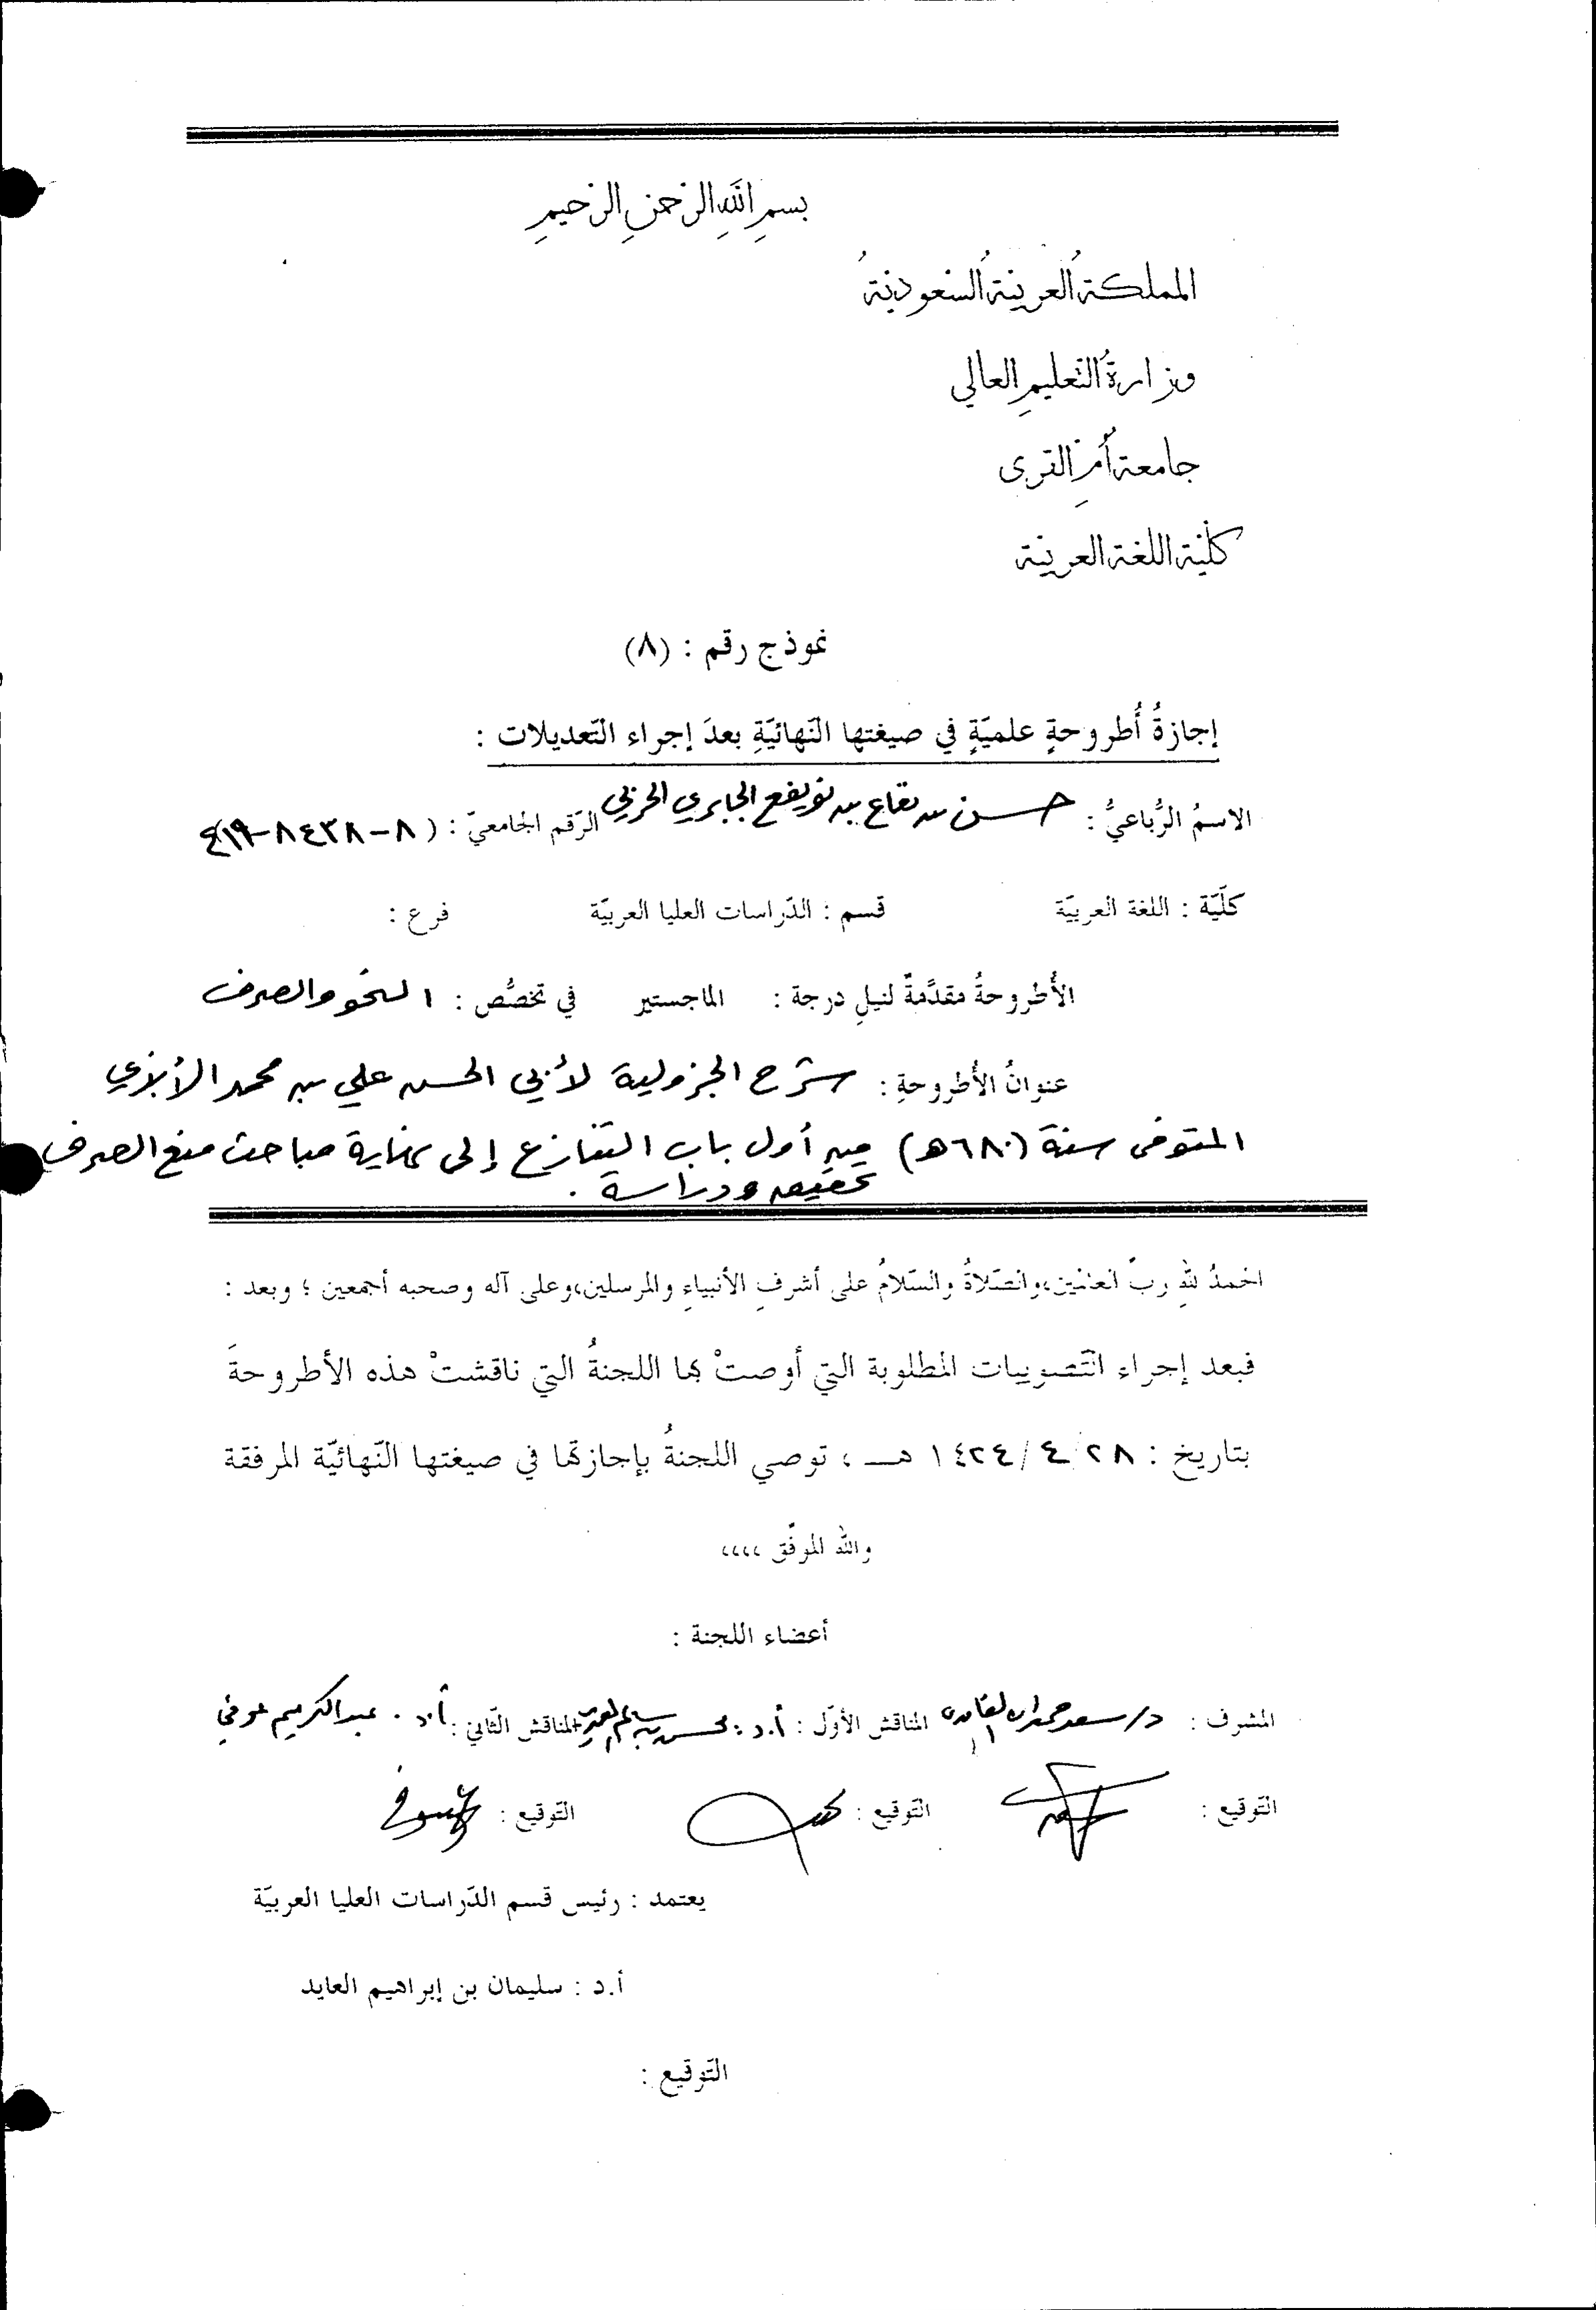 بسم الله الرحمن الرحيم
المملكةُ العربيةُ السعوديةُ
وزارةُ التعليمِ العالي
جامعة أمِّ القرى
كلّية اللغة العربية
نموذج رقم : (٨)
إجازةُ أُطروحةٍ علميّةٍ في صيغتها النّهائيّةِ بعدَ إجراء التّعديلات :
الاسمُ الرُّباعيُّ : حسن بن نفاع بن نويفع الجابري الحربي الرّقم الجامعيّ : (٨-٨٤٣٨-٤١٩)
كلّيّة : اللغة العربيّة قسم : الدّراسات العليا العربيّة فرع :
الأُطروحةُ مقدَّمةٌ لنيلِ درجة : الماجستير في تخصُّص : النحو والصرف
عنوانُ الأُطروحةِ : شرح الجزولية لأبي الحسن علي بن محمد الأبذي
المتوفى سنة (٦٨٠هـ) من أول باب التنازع إلى نهاية مباحث منع الصرف
تحقيق ودراسة .
الحمدُ للهِ ربّ العالمين،والصّلاةُ والسّلامُ على أشرفِ الأنبياءِ والمرسلين،وعلى آله وصحبه أجمعين ؛ وبعد :
فبعد إجراء التّصويبات المطلوبة التي أوصتْ بها اللجنةُ التي ناقشتْ هذه الأطروحةَ
بتاريخ : ٢٨/٤/١٤٢٤ هـ ، توصي اللجنةُ بإجازتها في صيغتها النّهائيّة المرفقة
والله الموفّق ،،،،
أعضاء اللجنة :
المشرف : د/سعد حمدان الغامدي المناقش الأوّل : أ.د : محسن بن سالم العميري المناقش الثّاني : أ.د . عبدالكريم عوفي
التّوقيع : التّوقيع : التّوقيع :
يعتمد : رئيس قسم الدّراسات العليا العربيّة
أ.د : سليمان بن إبراهيم العايد
التّوقيع :